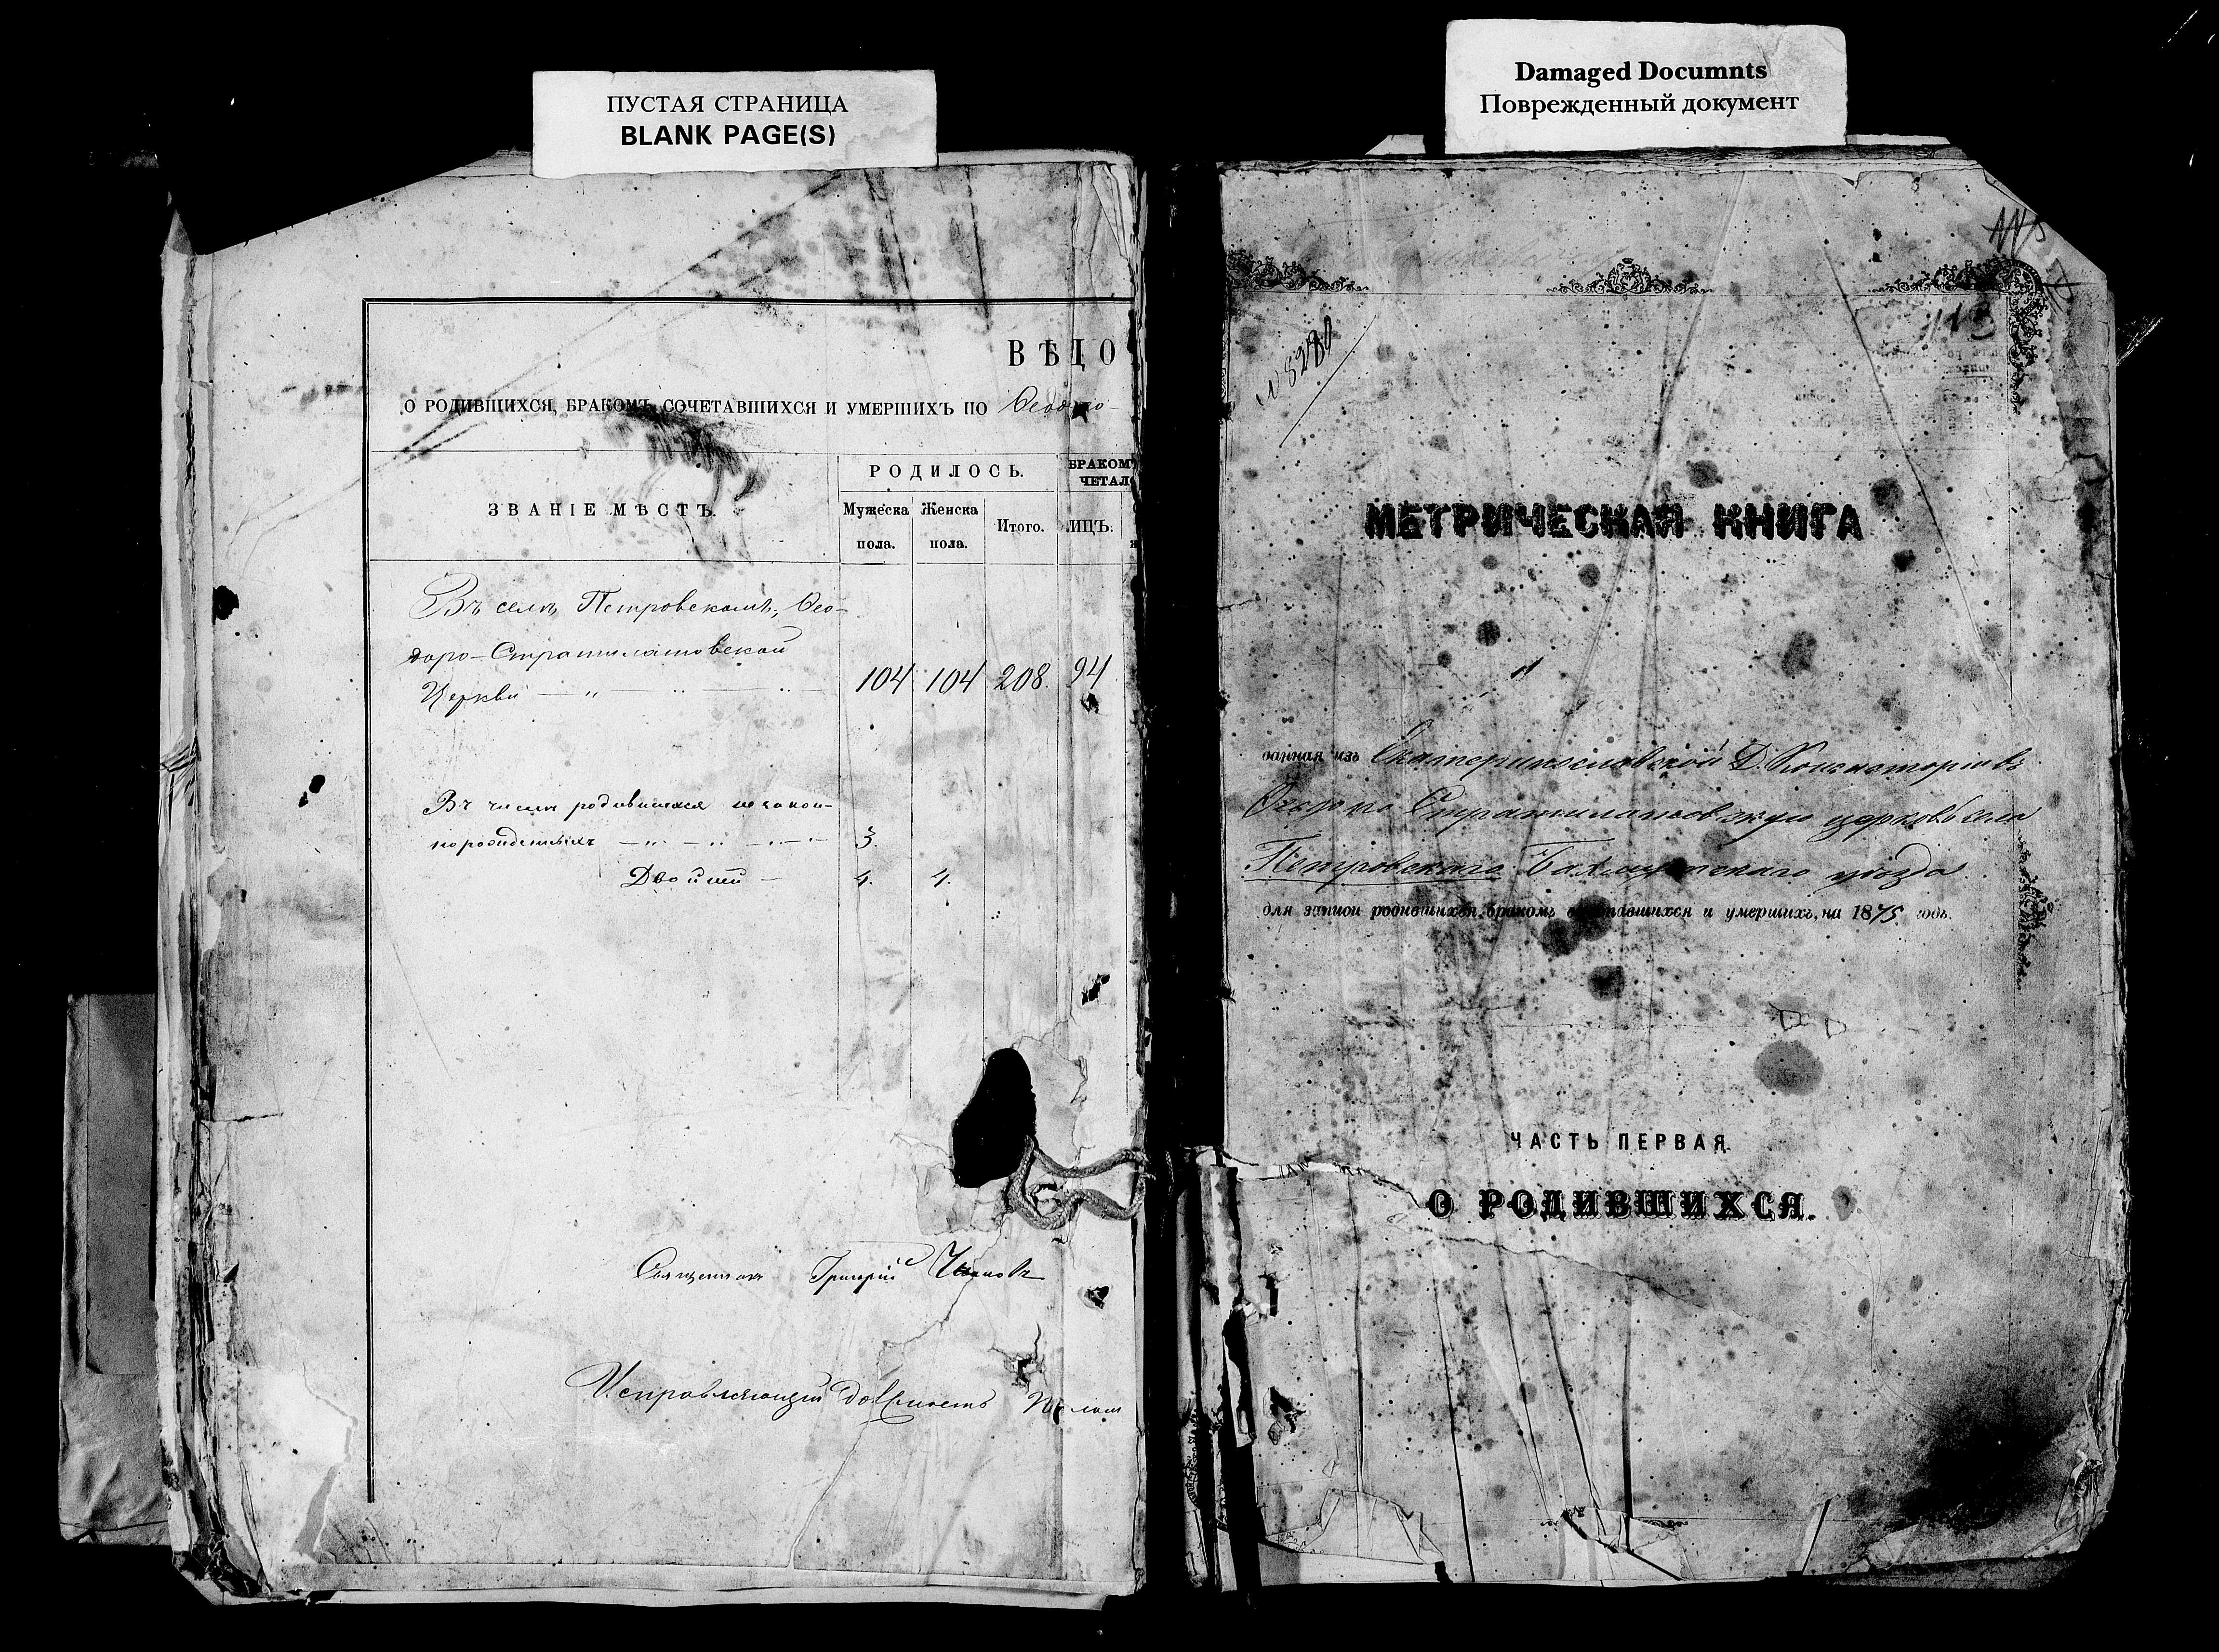 ПУСТАЯ СТРАНИЦА
BLANK PAGE(S)
ВѢДО
О РОДИВШИХСЯ, БРАКОМЪ СОЧЕТАВШИХСЯ И УМЕРШИХЪ ПО Ѳеодоро-
ЗВАНІЕ МѢСТЪ.
РОДИЛОСЬ.
БРАКОМЪ
ЧЕТАЛО
Мужеска пола.
Женска пола.
Итого.
ЛИЦЪ.
Въ селѣ Петровскомъ, Ѳео-
доро-Стратилатовской
Церкви 104 104 208. 94
Въ числѣ родившихся незакон-
норожденныхъ 3.
Двойни 4. 4.
Священникъ Григорій
Исправляющій должность
Damaged Documnts
Поврежденный документ
113
МЕТРИЧЕСКАЯ КНИГА
данная изъ Екатеринославской Д. Консисторіи въ
Ѳеодоро Стратилатовскую церковь села
Петровскаго Бахмутскаго уѣзда
для записи родившихся, бракомъ сочетавшихся и умершихъ, на 1875 годъ.
ЧАСТЬ ПЕРВАЯ.
О РОДИВШИХСЯ.